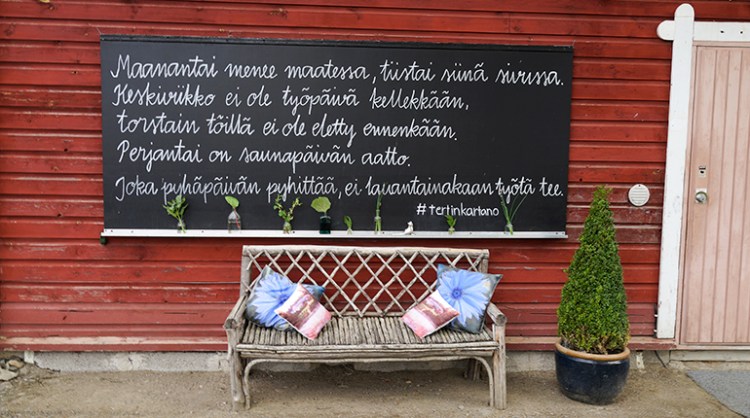 Maanantai menee maatessa, tiistai siinä sivussa.
Keskiviikko ei ole työpäivä kellekkään,
torstain töillä ei ole eletty ennenkään.
Perjantai on saunapäivän aatto.
Joka pyhäpäivän pyhittää, ei lauantainakaan työtä tee.
#tertinkartano